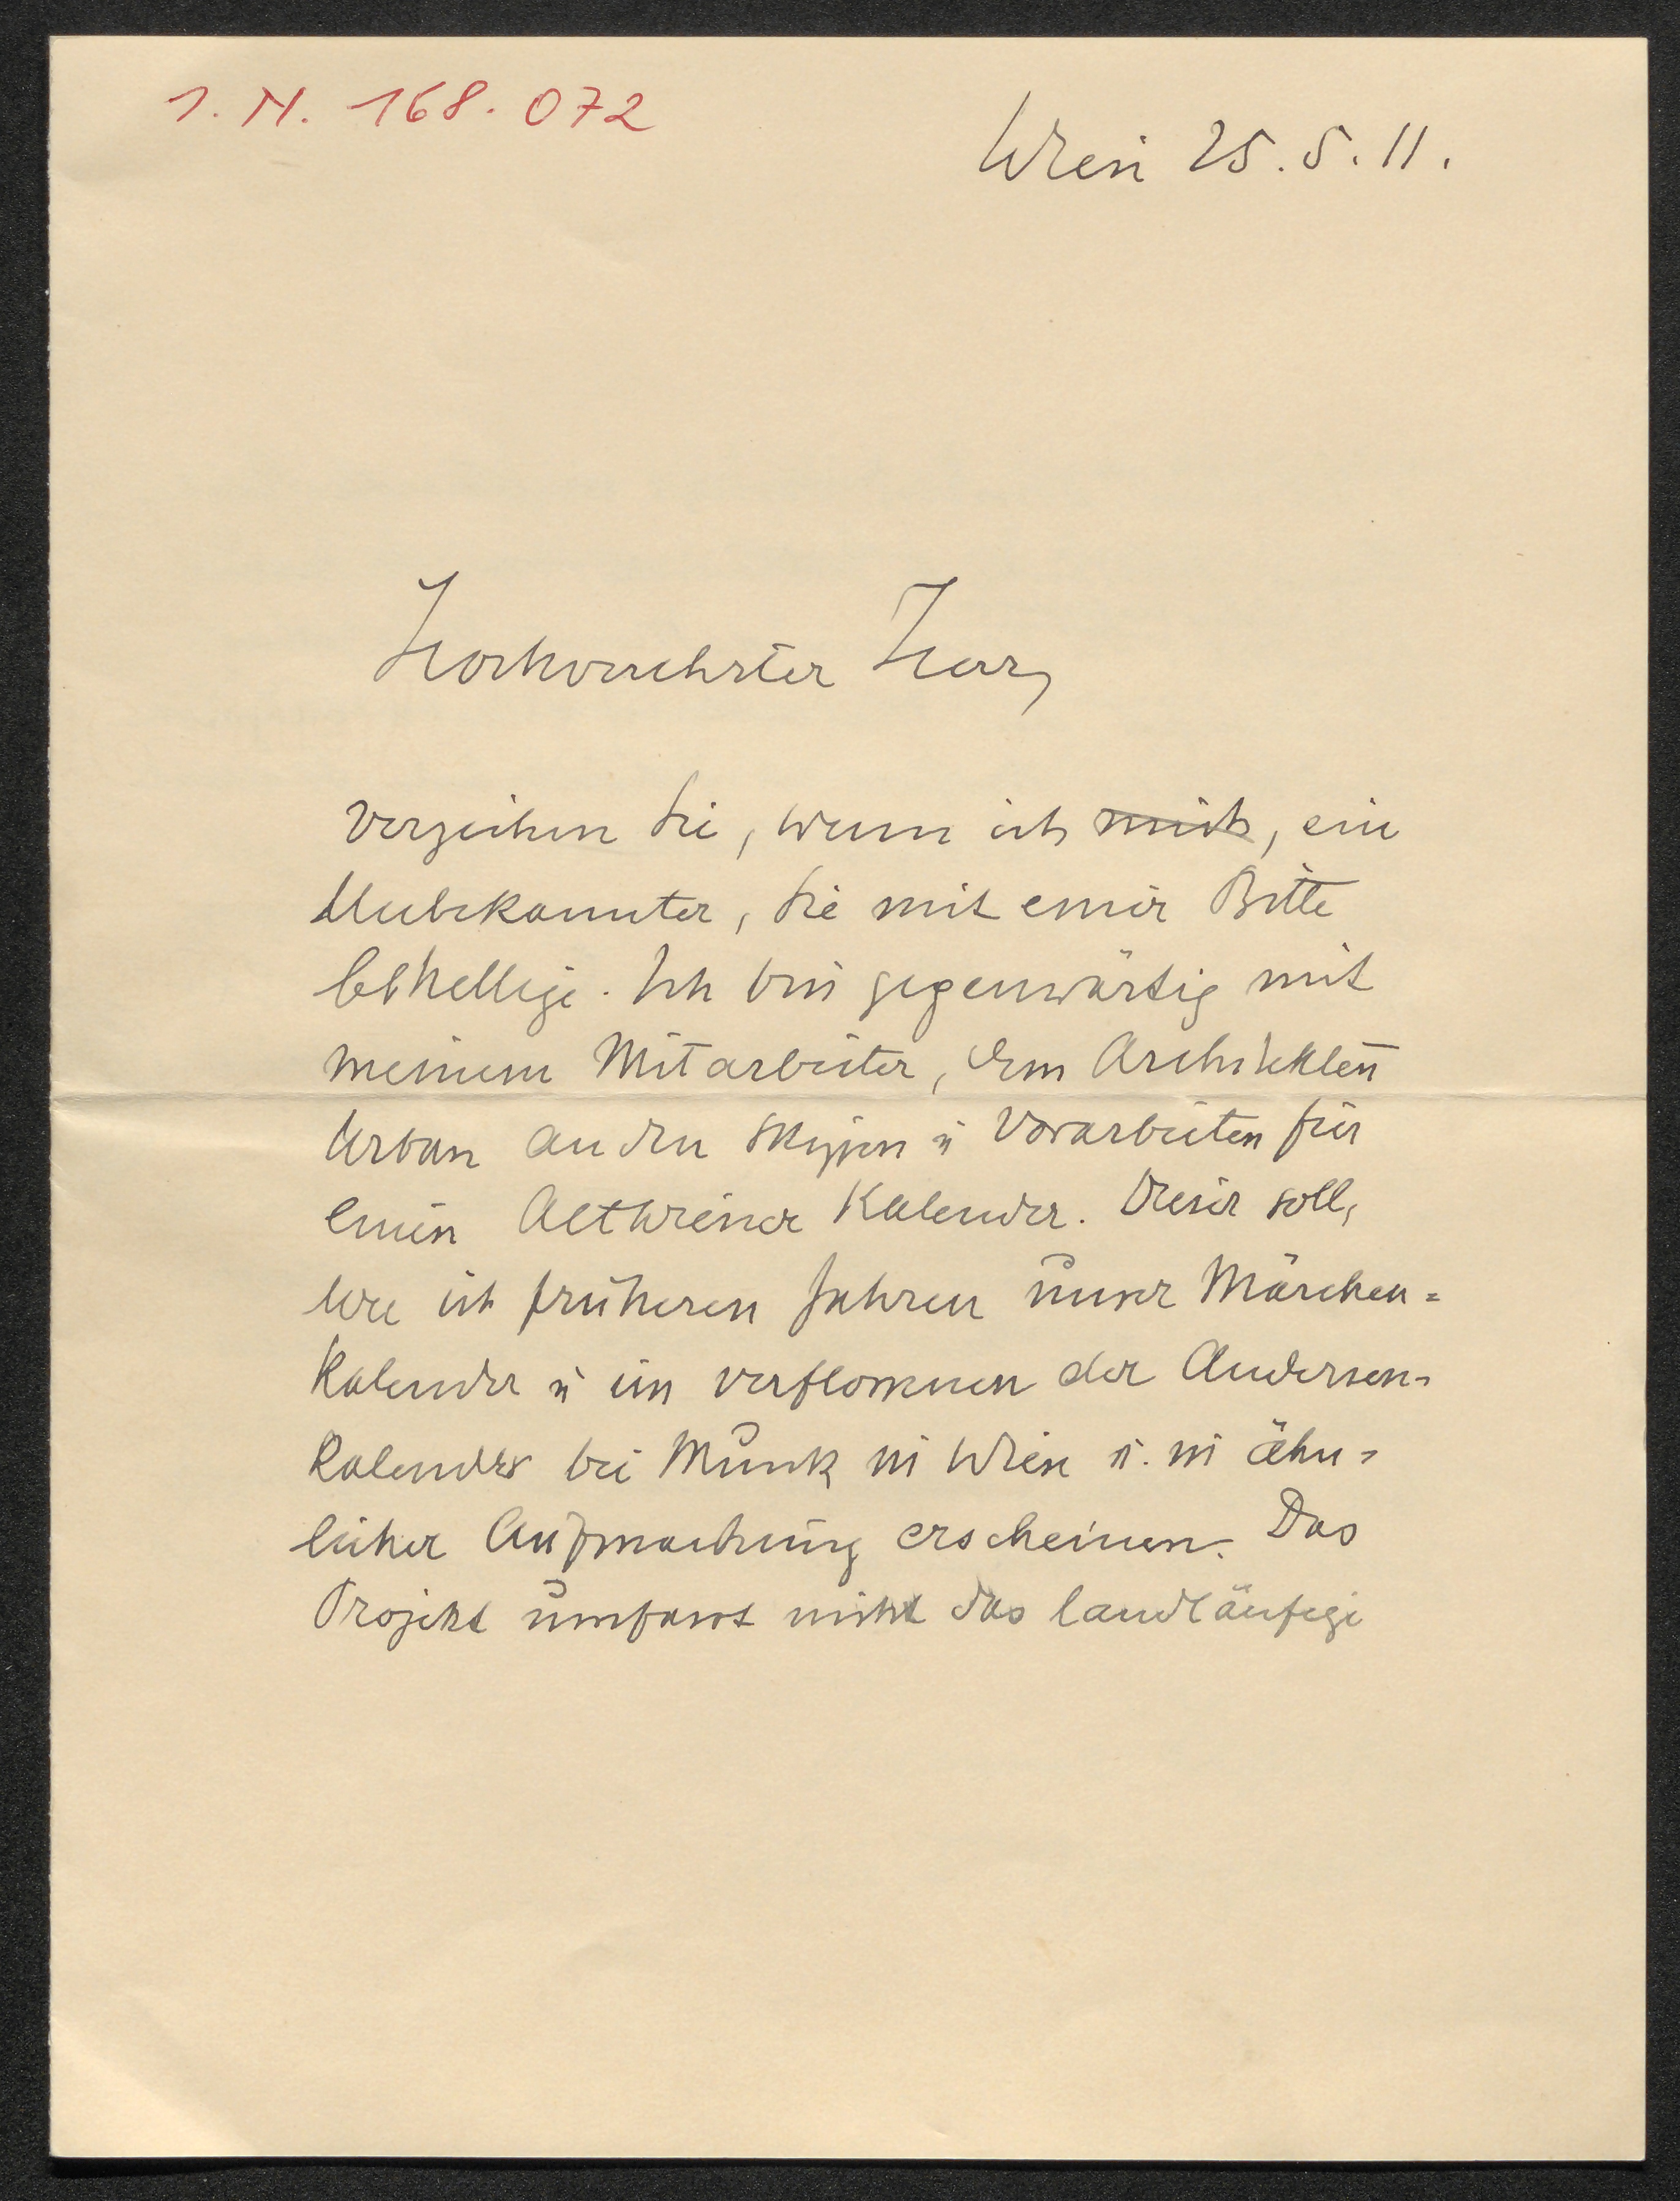 I. N. 168.072
Wien 25.5.11.
Hochverehrter Herr,
verzeihen Sie, wenn ich mich, ein
Unbekannter, Sie mit einer Bitte
behellige. Ich bin gegenwärtig mit
meinem Mitarbeiter, dem Architekten
Urban an den Skizzen u Vorarbeiten für
einen Altwiener Kalender. Dieser soll,
wie in früheren Jahren unser Märchen=
kalender u im verflossenen der Andersen=
kalender bei Munk in Wien u. in ähn=
licher Aufmachung erscheinen. Das
Projekt umfasst nicht das landläufige